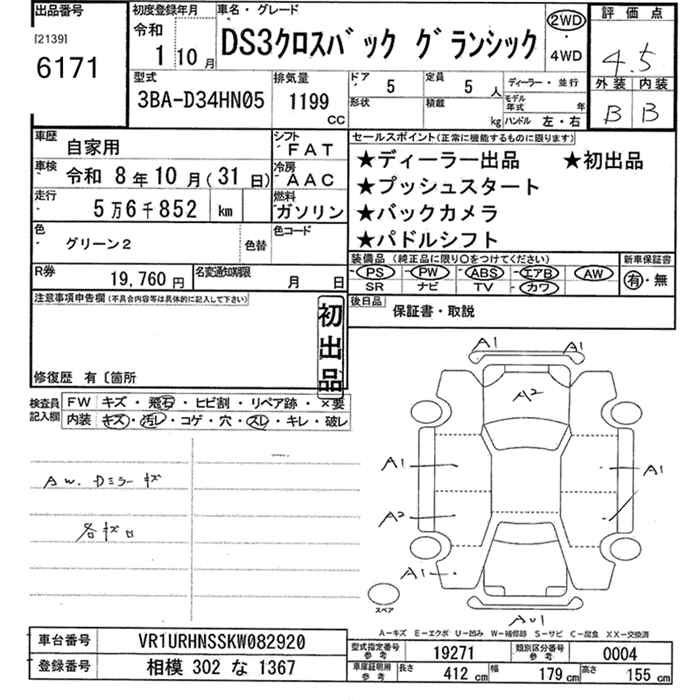 出品番号
[2139]
6171
初度登録年月
令和
1 10月
車名・グレード
DS3クロスバック グランシック
2WD
・
4WD
評価点
4.5
外装 内装
B B
型式
3BA-D34HN05
排気量
1199
CC
ドア 5
定員 5 人
形状
積載 kg
ディーラー・並行
モデル年式 年
ハンドル 左・右
車歴 自家用
シフト FAT
車検 令和 8年10月(31日)
冷房 AAC
走行 5万6千852 km
燃料 ガソリン
色 グリーン2
色替
色コード
R券 19,760円
名変通知期限 月 日
セールスポイント(正常に機能するものに限ります)
★ディーラー出品 ★初出品
★プッシュスタート
★バックカメラ
★パドルシフト
装備品(純正品に限り○をつけてください)
新車保証書
PS PW ABS エアB AW
SR ナビ TV カワ
有・無
後日品
保証書・取説
注意事項申告欄(不具合内容等は具体的に記入して下さい)
初出品
修復歴 有〔箇所
検査員記入欄
FW キズ・飛石・ヒビ割・リペア跡・×要
内装 キズ・汚レ・コゲ・穴・スレ・キレ・破レ
AW. Dミラーキズ
A1 A1
A2
A1 A1
A2
A1
スペア
AU1
A-キズ E-エクボ U-凹み W-補修跡 S-サビ C-腐食 XX-交換済
車台番号 VR1URHNSSKW082920
登録番号 相模 302 な 1367
型式指定番号参考 19271
類別区分番号参考 0004
車庫証明用参考 長さ 412cm 幅 179cm 高さ 155cm